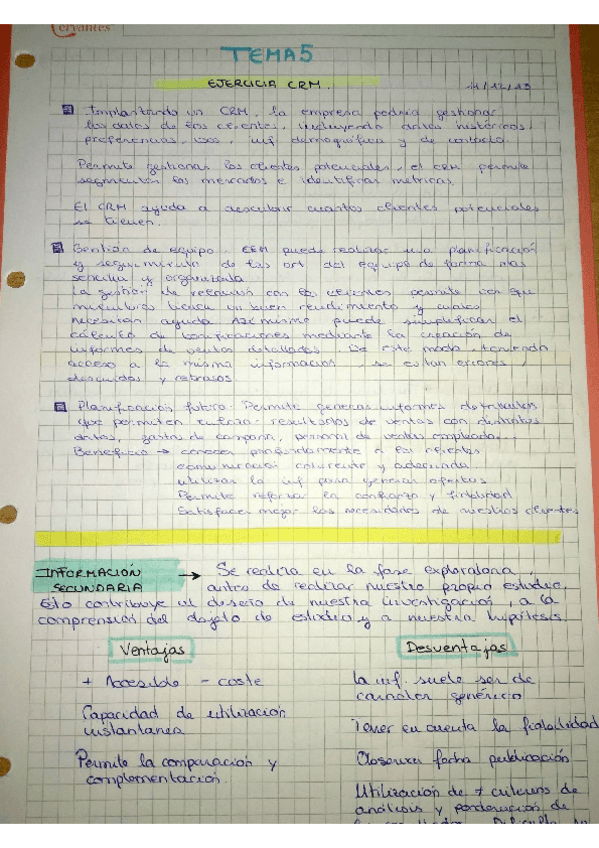 Cervantes
TEMA 5
EJERCICIO CRM. 11/12/19
Implantando un CRM, la empresa podría gestionar
los datos de los clientes, incluyendo datos históricos,
preferencias, usos, inf demográfica y de contacto.
Permite gestionar los clientes potenciales, el CRM permite
segmentar los mercados e identificar métricas.
El CRM ayuda a descubrir cuantos clientes potenciales
se tienen.
Gestión de equipo. CRM puede realizar una planificación
y seguimiento de las art del equipo de forma más
sencilla y organizada
La gestión de relación con los clientes permite ver que
miembros tienen un buen rendimiento y cuales
necesitan ayuda. Asimismo puede simplificar el
cálculo de bonificaciones mediante la creación de
informes de ventas detallados. De este modo, teniendo
acceso a la misma información, se evitan errores,
descuidos y retrasos.
Planificación futura. Permite generar informes detallados
que permiten cruzar resultados de ventas con distintos
datos, gastos de campaña, personal de ventas empleado...
Beneficio → conocer profundamente a los clientes
comunicación coherente y adecuada
utilizar la inf para generar ofertas
Permite reforzar la confianza y fidelidad
Satisfacer mejor las necesidades de nuestros clientes
INFORMACIÓN SECUNDARIA → Se realiza en la fase exploratoria,
antes de realizar nuestro propio estudio.
Esto contribuye al diseño de nuestra investigación, a la
comprensión del objeto de estudio y a nuestra hipótesis.
Ventajas
+ Accesible - coste
Capacidad de utilización
instantanea
Permite la comparación y
complementación.
Desventajas
la inf. suele ser de
carácter genérico
Tener en cuenta la fiabilidad
Observar fecha publicación
Utilización de ≠ criterios de
análisis y ponderación de